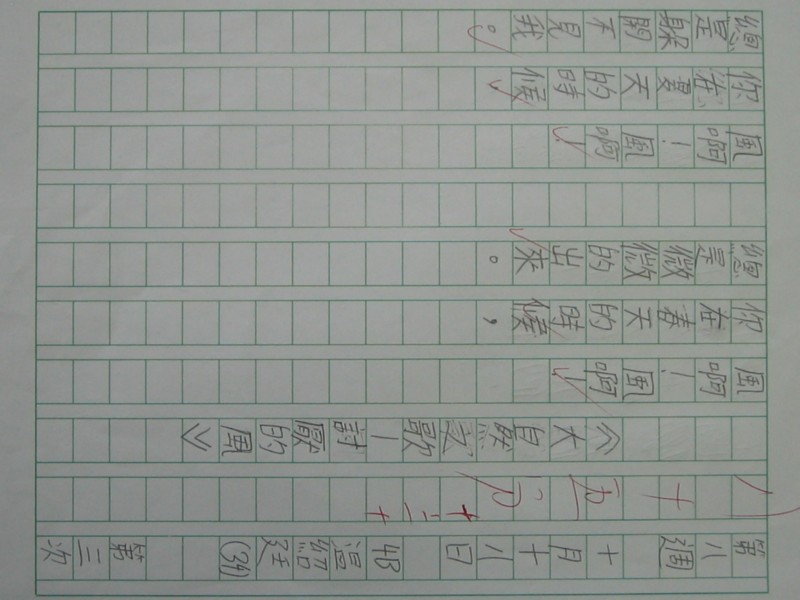 第八週 十月十八日 4B 溫紹廷(34) 第三次
八十五分
《大自然之歌—討厭的風》
風啊!風啊
你在春天的時候,
總是微微的出來。
風啊!風啊
你在夏天的時候
總是躲開不見我。